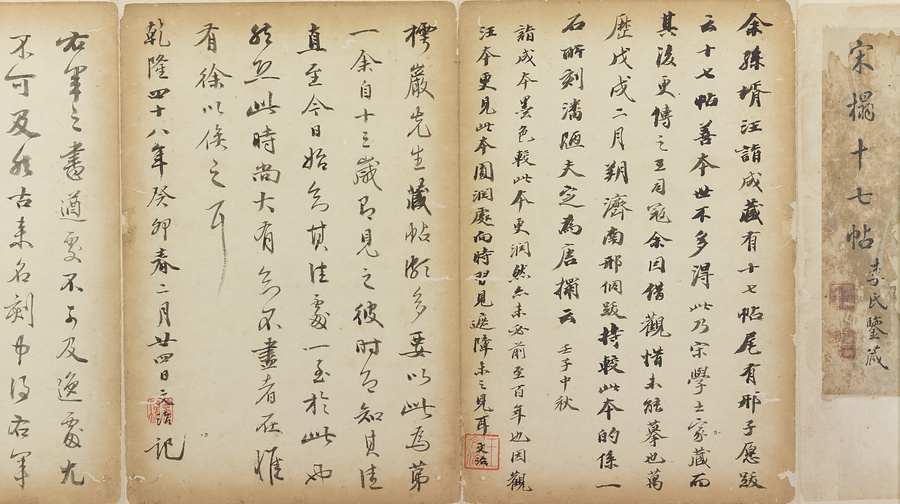 宋搨十七帖
李氏鑒藏
余孫壻汪詣成藏有十七帖尾有邢子愿跋
云十七帖善本世不多得此乃宋學士家藏而
其後更傳之王同冠余因借觀惜未能摹也萬
歷戊戌二月朔濟南邢侗跋持較此本的係一
石所刻潘陋夫定為唐搨云 壬子中秋
詣成本墨色較此本更潤然亦未必前至百年也因觀
汪本更見此本圓潤處向時習見遮障未之見耳
文治
檡巖先生藏帖頗多要以此為第
一余自十三歲即見之彼時即知其佳
直至今日始知其佳處一至於此也
然思此時尚大有知不盡者在惟
有徐以俟之耳
乾隆四十八年癸卯春二月廿四日文治記
右軍之書遒處不可及逸處尤
不可及然古來名刻中得右軍